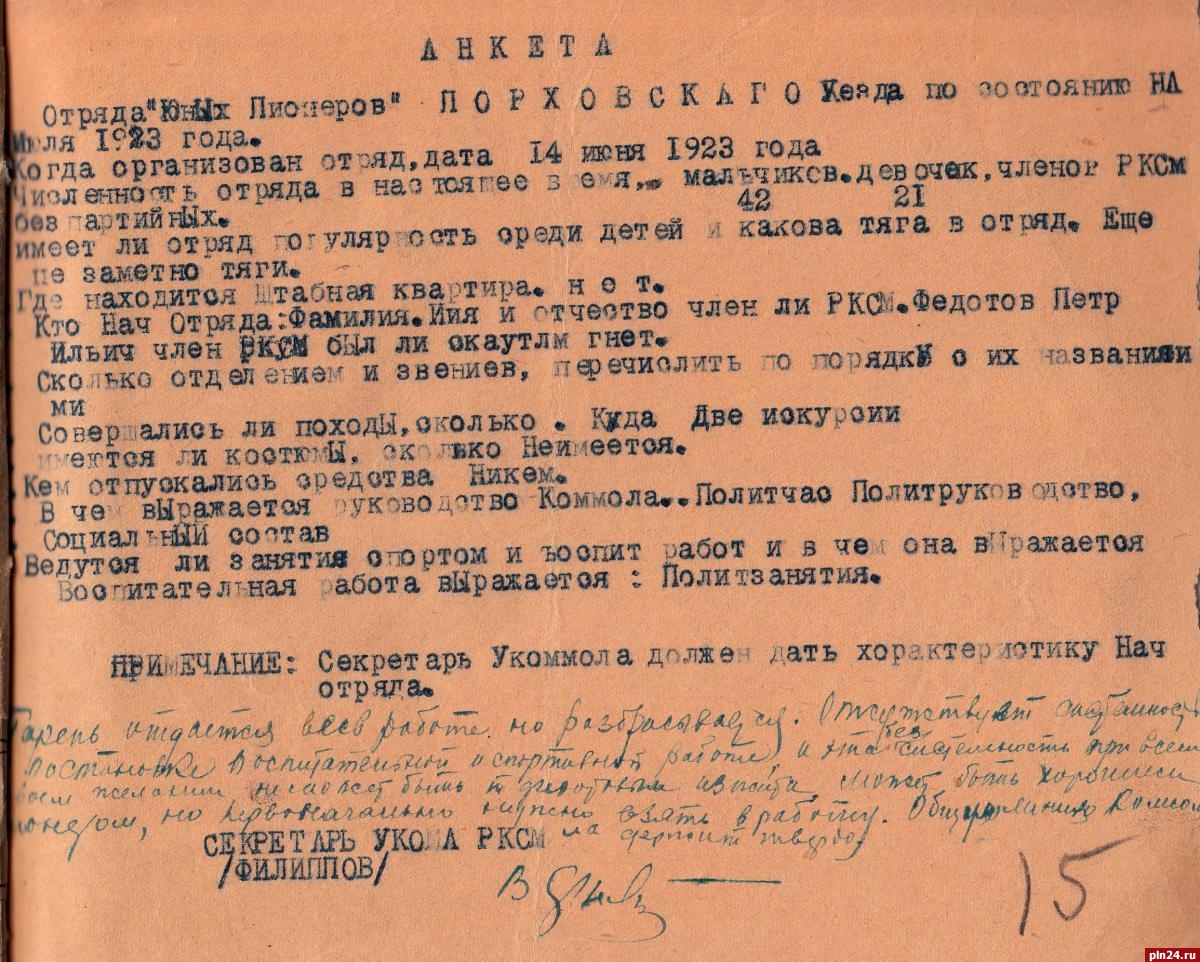 АНКЕТА
Отряда"Юных Пионеров" ПОРХОВСКАГО Уезда по состоянию НА
Июля 1923 года.
Когда организован отряд,дата 14 июня 1923 года
Численность отряда в настоящее время,, мальчиков.девочек,членов РКСм
42 21
без партийных.
имеет ли отряд популярность среди детей и какова тяга в отряд. Еще
не заметно тяги.
Где находится Штабная квартира. нет.
Кто Нач Отряда:Фамилия.Имя и отчество член ли РКСМ.Федотов Петр
Ильич член РКСМ был ли скаутлм гнет.
Сколько отделением и звениев, перечислить по порядку с их названиями
ми
Совершались ли походы,сколько . Куда Две искурсии
имеются ли костюмы, сколько Неимеется.
Кем отпускались средства Никем.
В чем выражается руководство Коммола..Политчас Политруководство,
Социальный состав
Ведутся ли занятия спортом и воспит работ и в чем она выражается
Воспитательная работа выражается : Политзанятия.
ПРИМЕЧАНИЕ: Секретарь Укоммола должен дать хорактеристику Нач
отряда.
Парень отдается весь работе, но разбрасывается. Отсутствует системность
постановке воспитательной и спортивной работе, и эта безсистемность при всем
желании может быть может быть хорошим
но первоначально нужно взять в работу.
держит твердо.
СЕКРЕТАРЬ УКОМА РКСМ
/ФИЛИППОВ/
15
pln24.ru